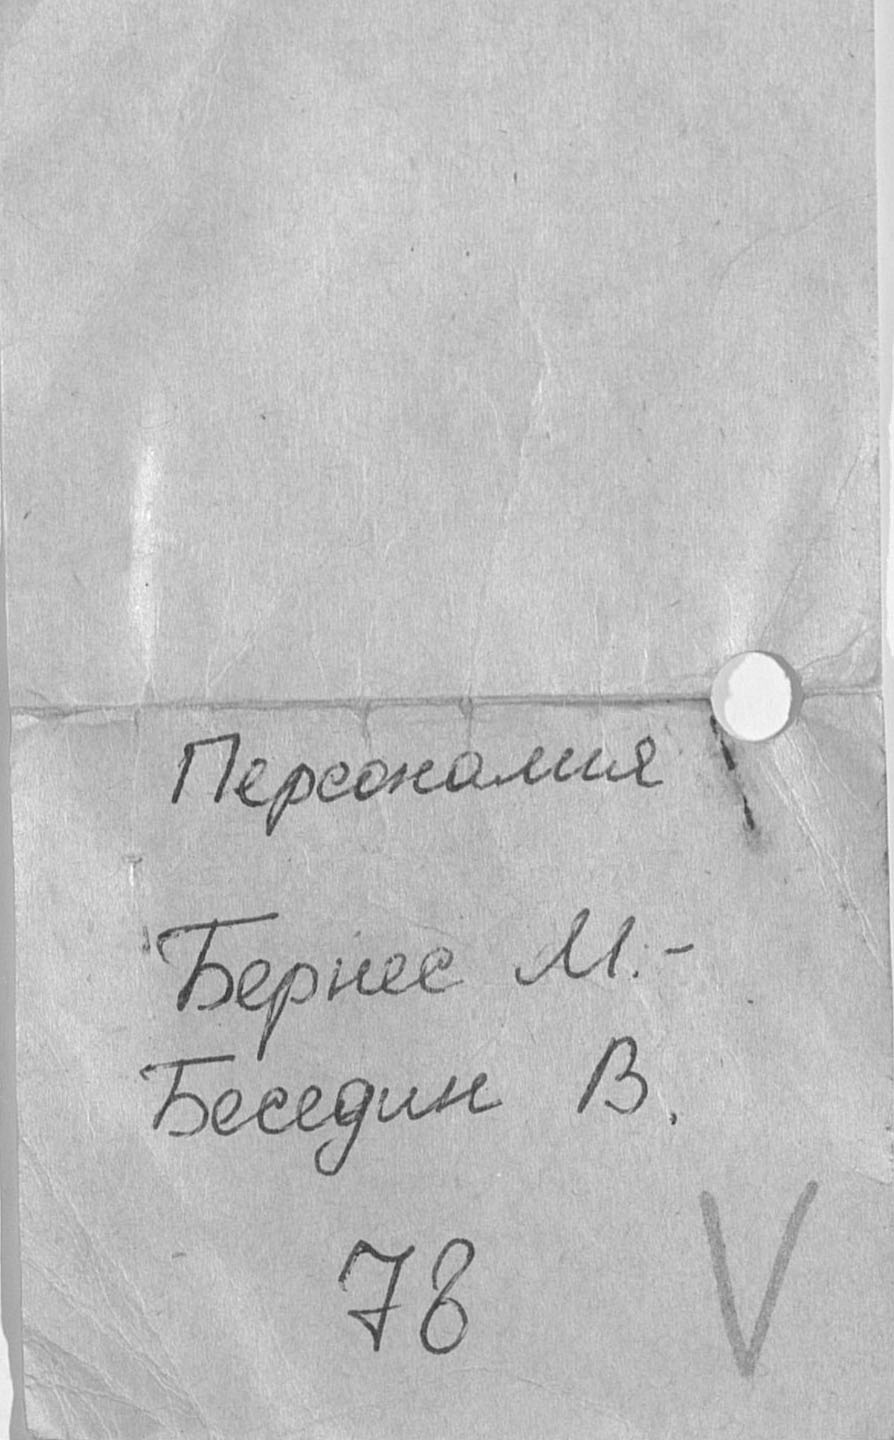 Персоналия
Бернес М. -
Беседин В.
78
V